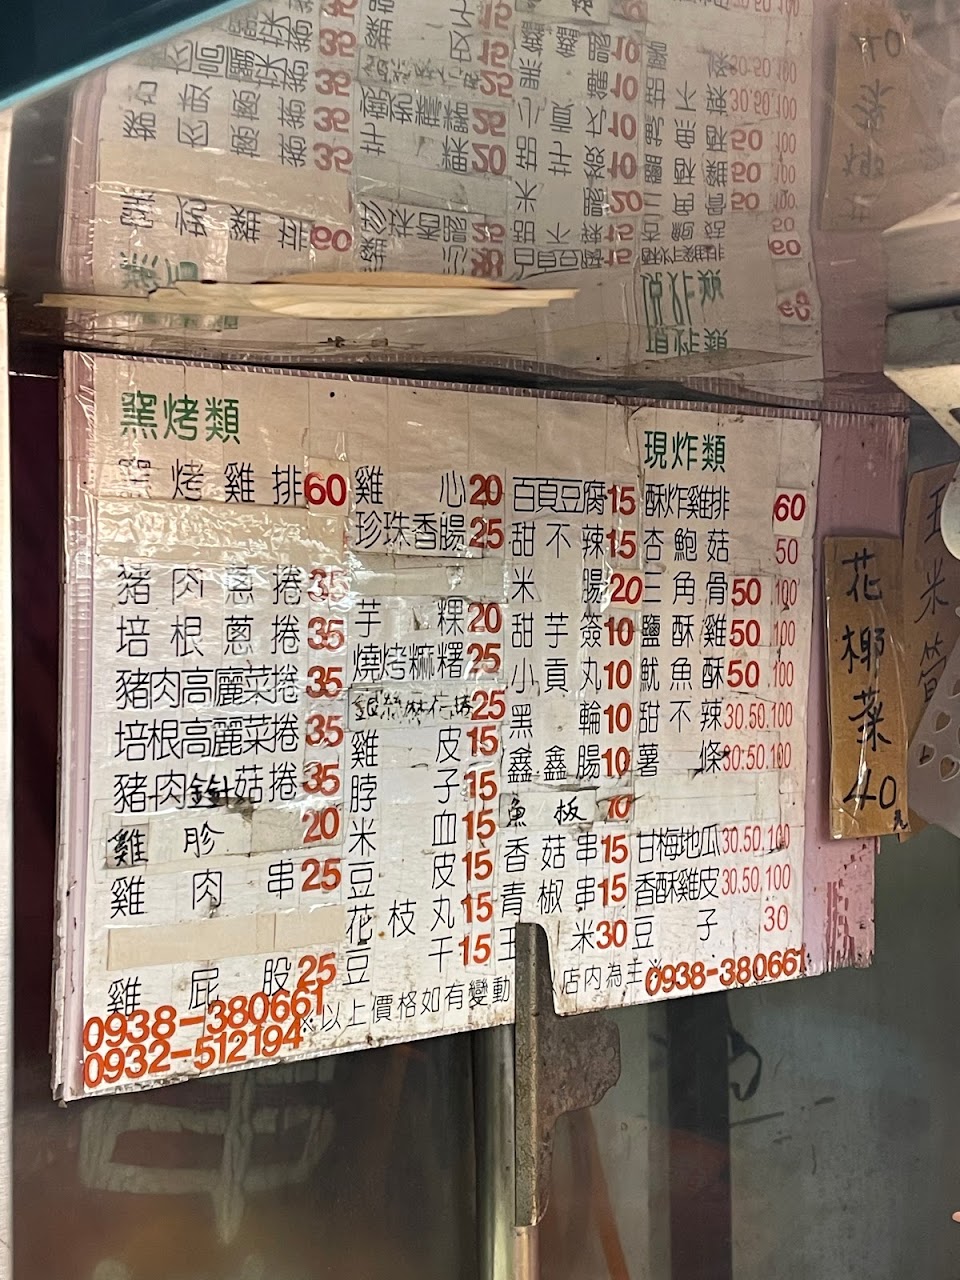 窯烤類
窯烤雞排60
豬肉蔥捲35
培根蔥捲35
豬肉高麗菜捲35
培根高麗菜捲35
豬肉金針菇捲35
雞胗20
雞肉串25
雞屁股25
0938-380661
0932-512194
雞心20
珍珠香腸25
芋粿20
燒烤麻糬25
銀絲麻糬捲25
雞皮15
脖子15
米血15
豆皮15
花枝丸15
豆干15
百頁豆腐15
甜不辣15
米腸20
甜芋簽10
小貢丸10
黑輪10
鑫鑫腸10
魚板10
香菇串15
青椒串15
玉米30
現炸類
酥炸雞排60
杏鮑菇50
三角骨50.100
鹽酥雞50.100
魷魚酥50.100
甜不辣30.50.100
薯條30.50.100
甘梅地瓜30.50.100
香酥雞皮30.50.100
豆子30
※以上價格如有變動
店內為主※
0938-380661
花椰菜40元
玉米筍